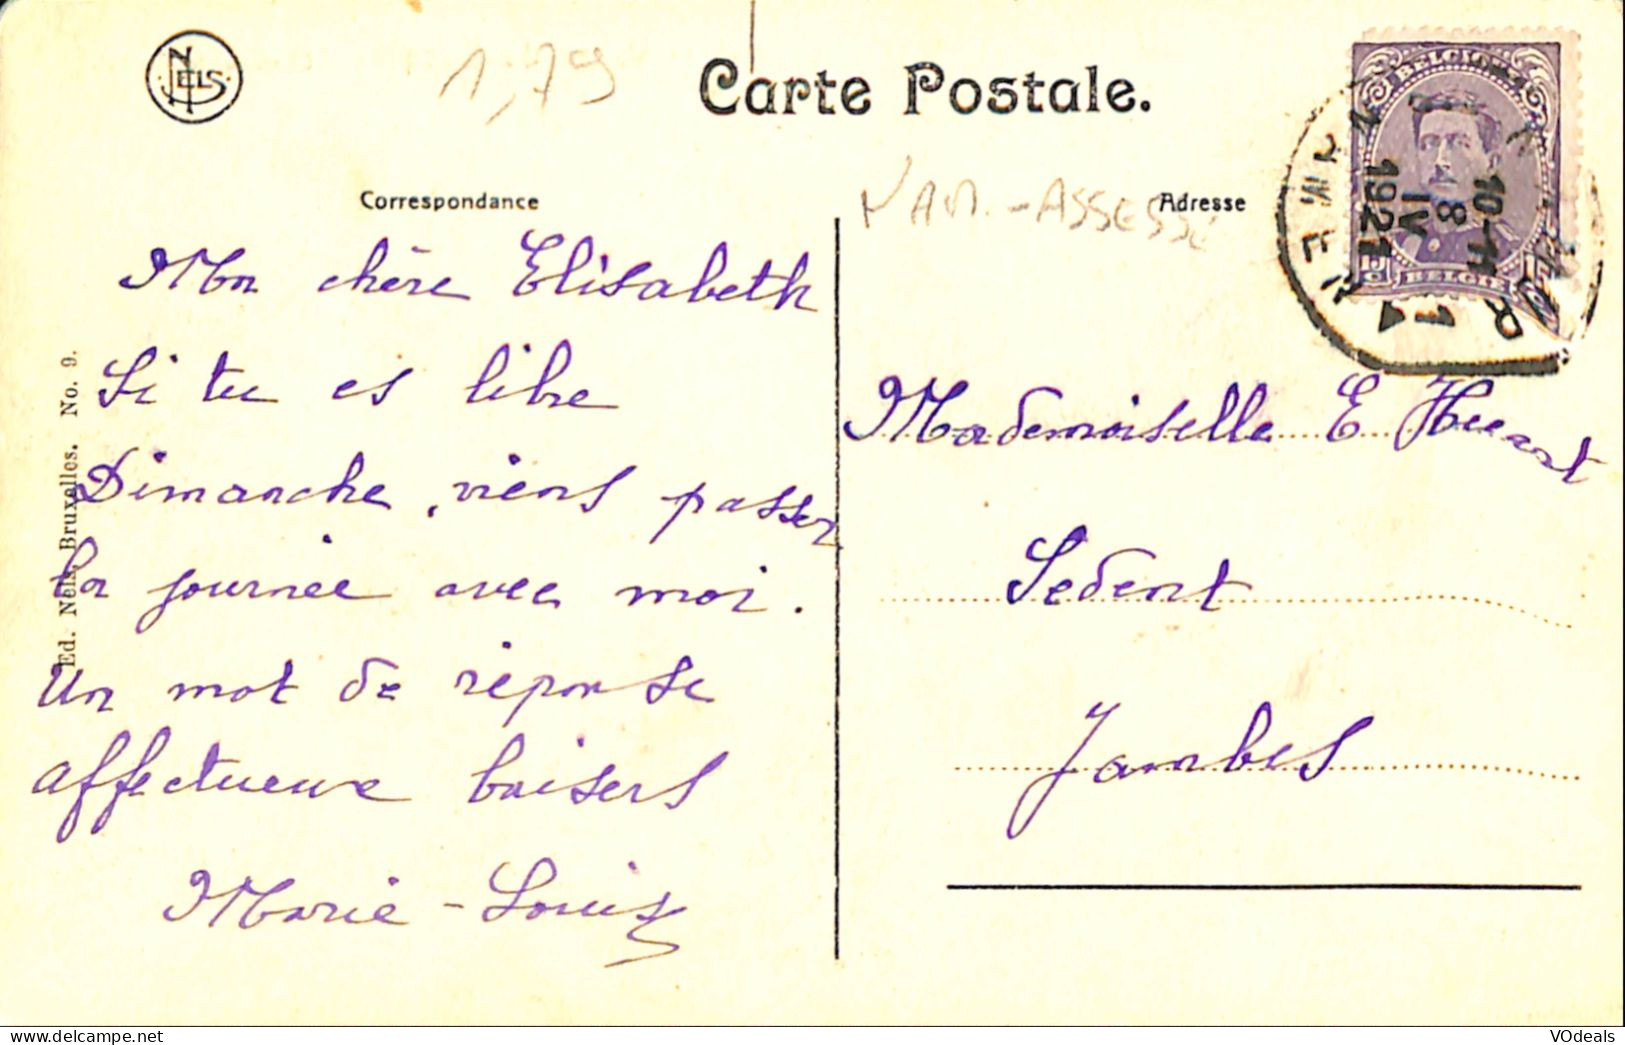 NELS
1,79
Carte Postale.
Correspondance
Adresse
NAM. - ASSESSE
BELGIQUE
10-11
8
IV
1921
1
15 C
BELGIE
NAMUR
NAMEN
Ma chère Elisabeth
Si tu es libre
Dimanche, viens passer
la journée avec moi.
Un mot de réponse
affectueux baisers
Marie - Louise
Mademoiselle E Heuart
Sedent
Jambes
Ed. Nels, Bruxelles. No. 9.
VOdeals